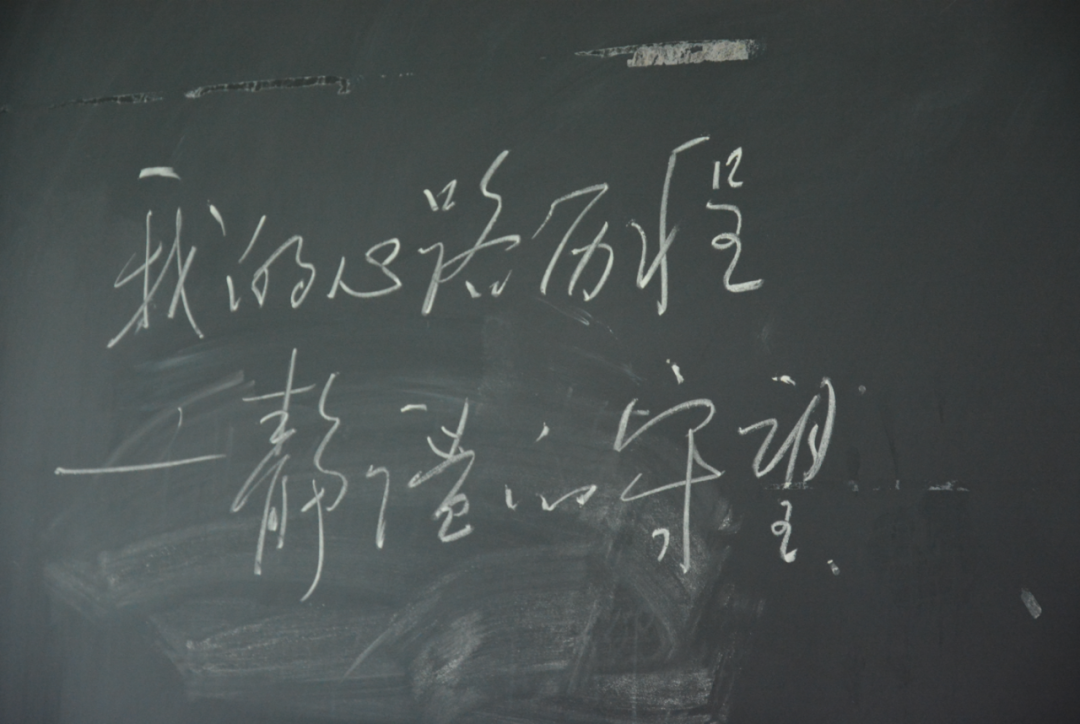 我的心路历程
—静谧的守望